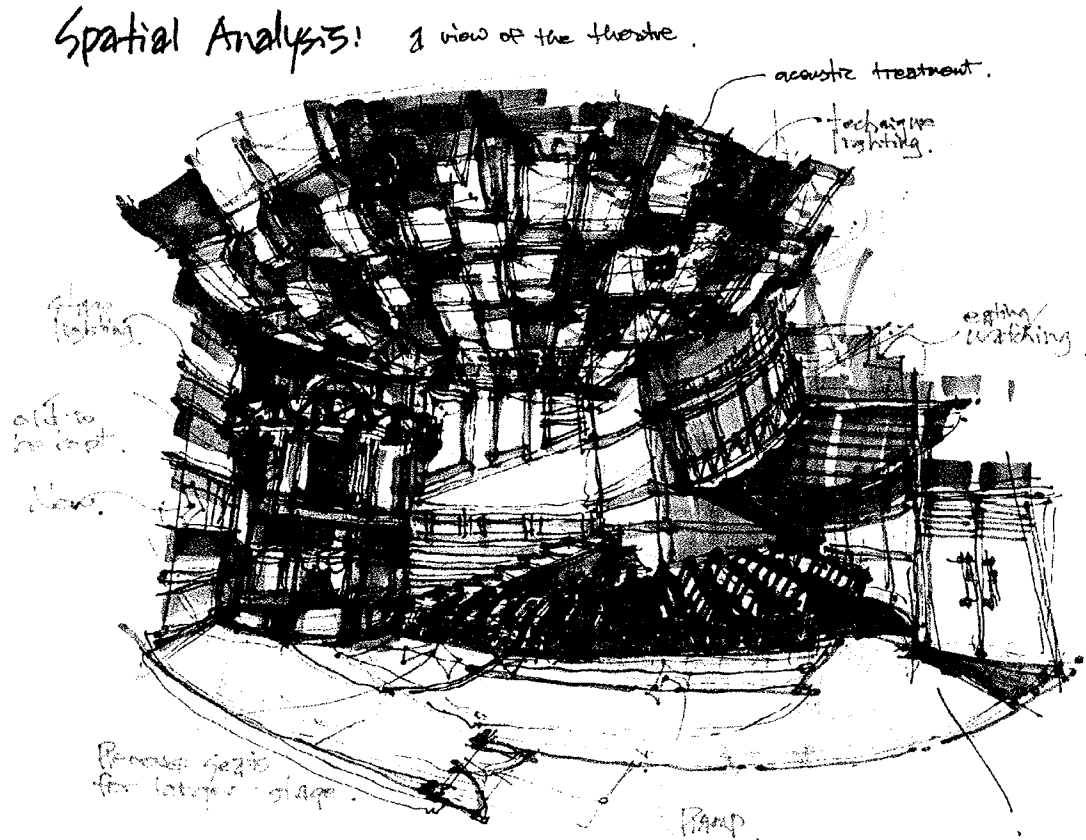 Spatial Analysis: a view of the theatre.
acoustic treatment.
technique
lighting.
stage
lighting.
eating/
watching.
old to
be kept.
New.
Remove seats
for larger stage.
Ramp